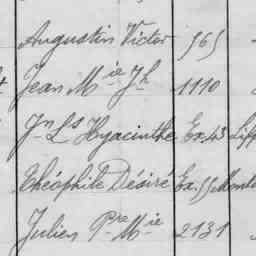 Augustin Victor 565
Jean Mie Jh 1110
Jn Ls Hyacinthe Ex.43
Théophile Désiré Ex.55
Julien Pre Mie 2131